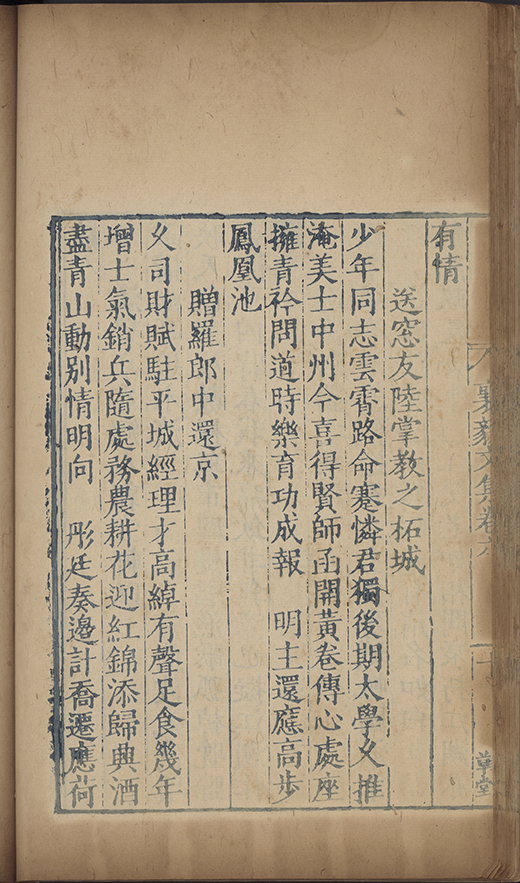 襄毅文集卷六
草堂
有情
送窓友陸掌教之柘城
少年同志雲霄路命蹇憐君獨後期太學久推
淹美士中州今喜得賢師函開黃卷傳心處座
擁青衿問道時樂育功成報　明主還應高步
鳳凰池
贈羅郎中還京
久司財賦駐平城經理才高綽有聲足食幾年
增士氣銷兵隨處務農耕花迎紅錦添歸興酒
盡青山動別情明向　彤廷奏邊計喬遷應荷